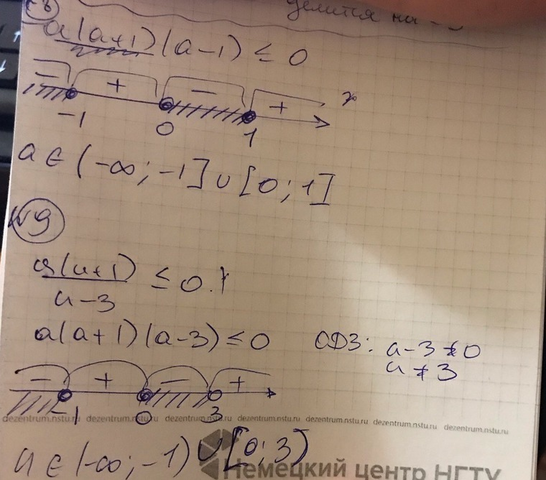 делится на
a(a+1)(a-1) ≤ 0
- + - + x
-1 0 1
a ∈ (-∞; -1] ∪ [0; 1]
№9
a(a+1)
a-3 ≤ 0
a(a+1)(a-3) ≤ 0 ОДЗ: a-3 ≠ 0
a ≠ 3
- + - +
-1 0 3
dezentrum.nstu.ru dezentrum.nstu.ru dezentrum.nstu.ru dezentrum.nstu.ru dezentrum.nstu.ru
a ∈ (-∞; -1) ∪ [0; 3)
Немецкий центр НГТУ